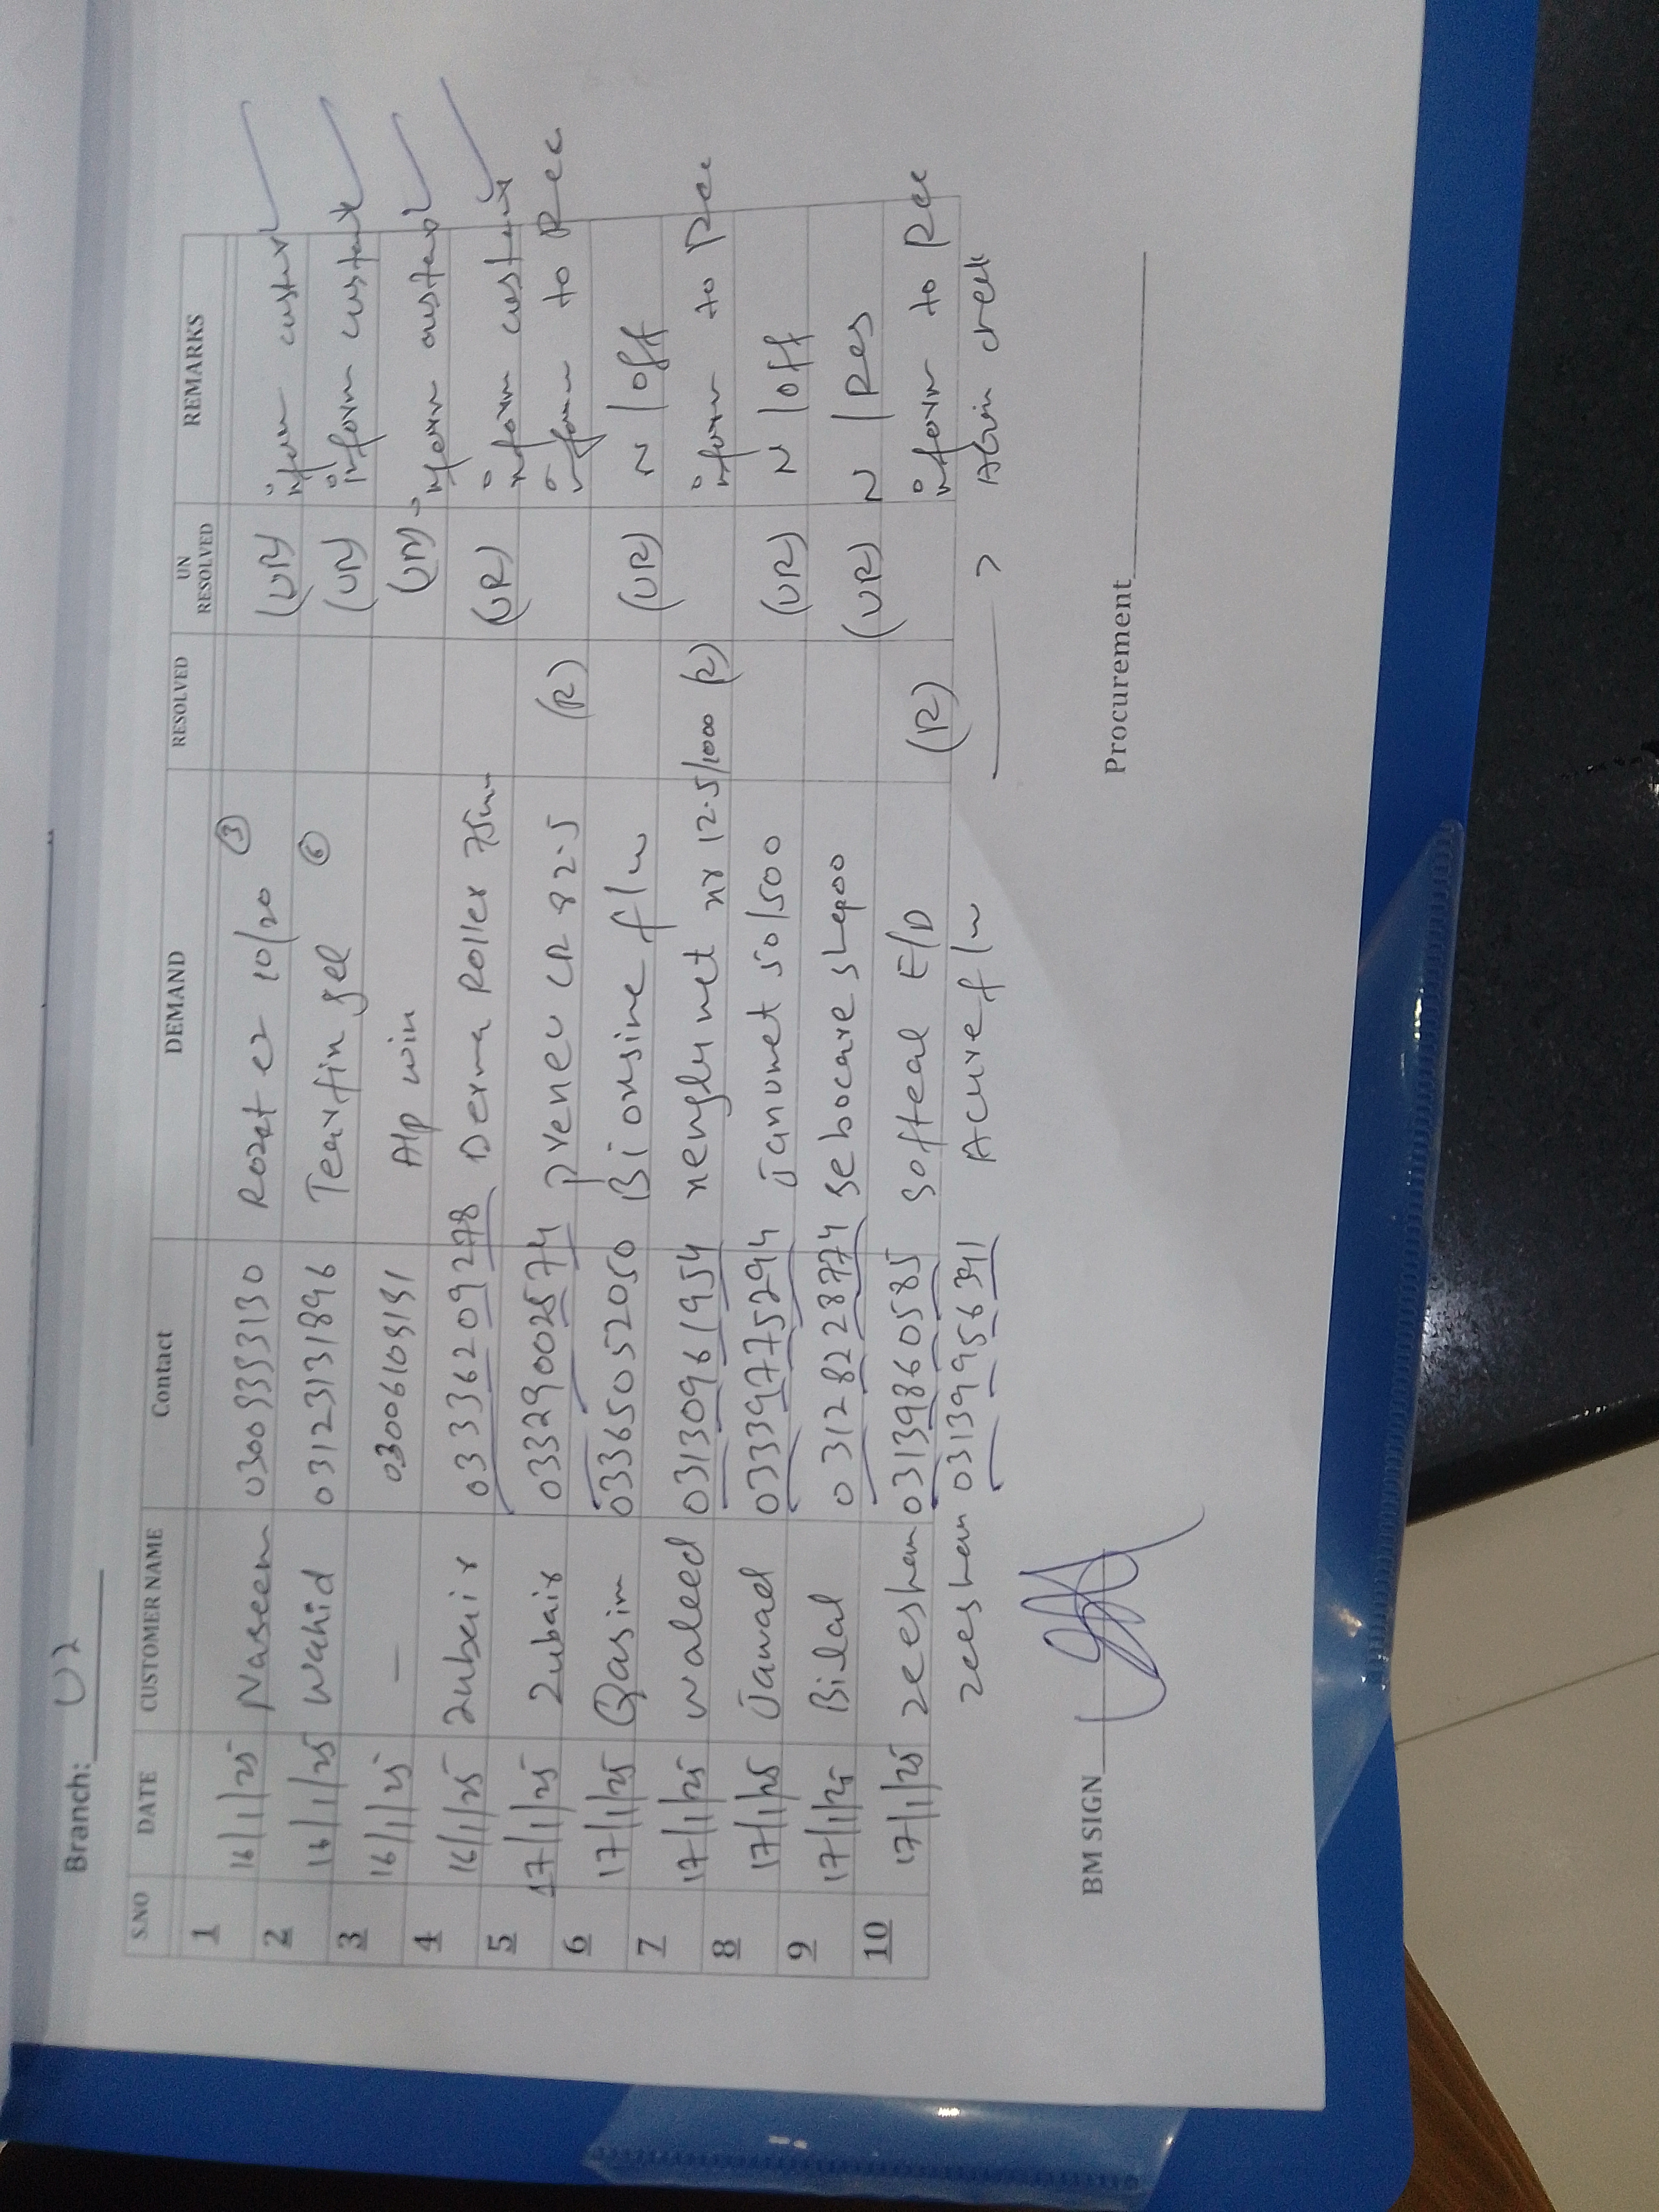 Branch: U2
S.NO DATE CUSTOMER NAME Contact DEMAND RESOLVED UN RESOLVED REMARKS
1 16/1/25 Naseem 03009393130 Rozat ez 10/20 (3) (UR) inform custer
2 16/1/25 Wahid 03123131896 Tearfin gel (6) (UR) inform custer
3 16/1/25 — 03006109191 Alp win (UR) inform custer
4 16/1/25 Zubair 03336209278 Derma Roller 75mm (UR) inform custer
5 17/1/25 Zubair 03329002574 preneu CR 82.5 (R) inform to Rec
6 17/1/25 Qasim 03365052050 Bionsine f/w (UR) N/off
7 17/1/25 waleed 03130961954 xenglu met xr 12.5/1000 (R) inform to Rec
8 17/1/25 Jawad 03339775294 Janumet 50/500 (UR) N/off
9 17/1/25 Bilal 03128228774 sebocare shepoo (UR) N/Res
10 17/1/25 zeeshan 03139860585 softeal E/D (R) inform to Rec
zeeshan 03139956391 Acure f/w
BM SIGN Procurement